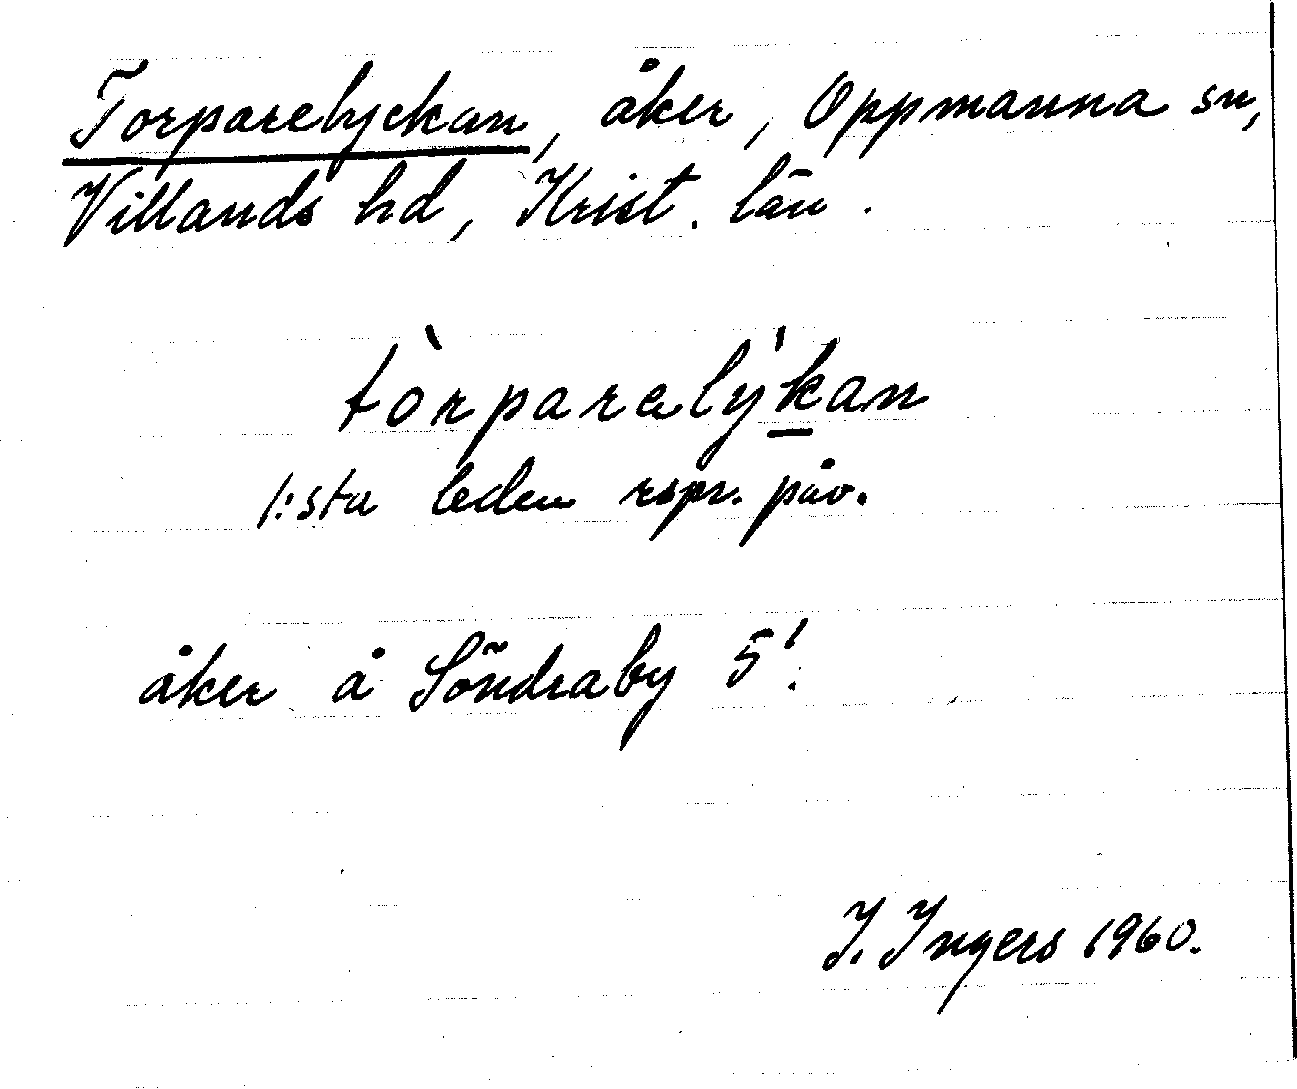 Torparelyckan, åker, Oppmanna sn,
Villands hd, Krist. län.
tòrparalýkan
1:sta leden rspr. påv.
åker å Söndraby 5¹.
I. Ingers 1960.